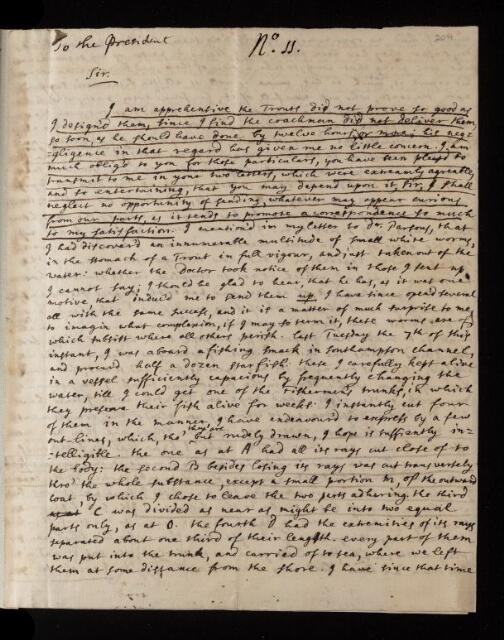 To the President
No. 11.
204
Sir.
I am apprehensive the Trouts did not prove so good as
I design'd them, since I find the coachman did not deliver them
so soon, as he should have done, by twelve hours or more; his neg=
=gligence in that regard has given me no little concern. I am
much oblig'd to you for those particulars, you have been pleas'd to
transmit to me in your two letters, which were extreamly agreeable,
and so entertaining, that you may depend upon it, Sir, I shall
neglect no opportunity of sending whatever may appear curious
from our parts, as it tends to promote a correspondence so much
to my satisfaction. I mention'd in my letter to Dr. Parsons, that
I had discover'd an innumerable multitude of small white worms,
in the stomach of a Trout in full vigour, and just taken out of the
water: whether the Doctor took notice of them in those I sent up,
I cannot say; I should be glad to hear, that he has, as it was one
motive, that induc'd me to send them up. I have since open'd several
all with the same success, and it is a matter of much surprise to me
to imagin what complexion, if I may so term it, these worms are of,
which subsist where all others perish. Last Tuesday the 7th of this
instant, I was aboard a fishing smack in Southampton channel,
and procur'd half a dozen starfish: these I carefully kept alive
in a vessel sufficiently capacious by frequently changing the
water, till I could get one of the Fishermen's trunks, in which
they preserve their fish alive for weeks: I instantly cut four
of them in the manner, I have endeavour'd to express by a few
out-lines, which, tho' they are but rudely drawn, I hope is sufficiently in=
=telligible. the one as at A had all its rays cut close of to
the body: the second B besides losing its rays was cut transversely
thro' the whole substance, except a small portion of the outward
coat, by which I chose to leave the two parts adhering. the third
as at C was divided as near as might be into two equal
parts only, as at O. the fourth D had the extremities of its rays
separated about one third of their length. every part of them
was put into the trunk, and carried of to sea, where we left
them at some distance from the shore. I have since that time